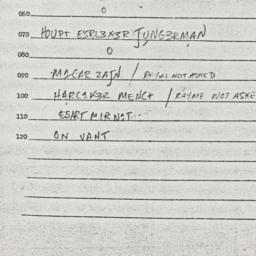 060 0
070 HOUPT ESRL3K3R JUNG3RMAN
080 0
090 MAGAR ZAJN / RHYME NOT ASKED
100 HARC1K3R MENCT / RHYME NOT ASKE
110 ESART MIRNST
120 ON VANT